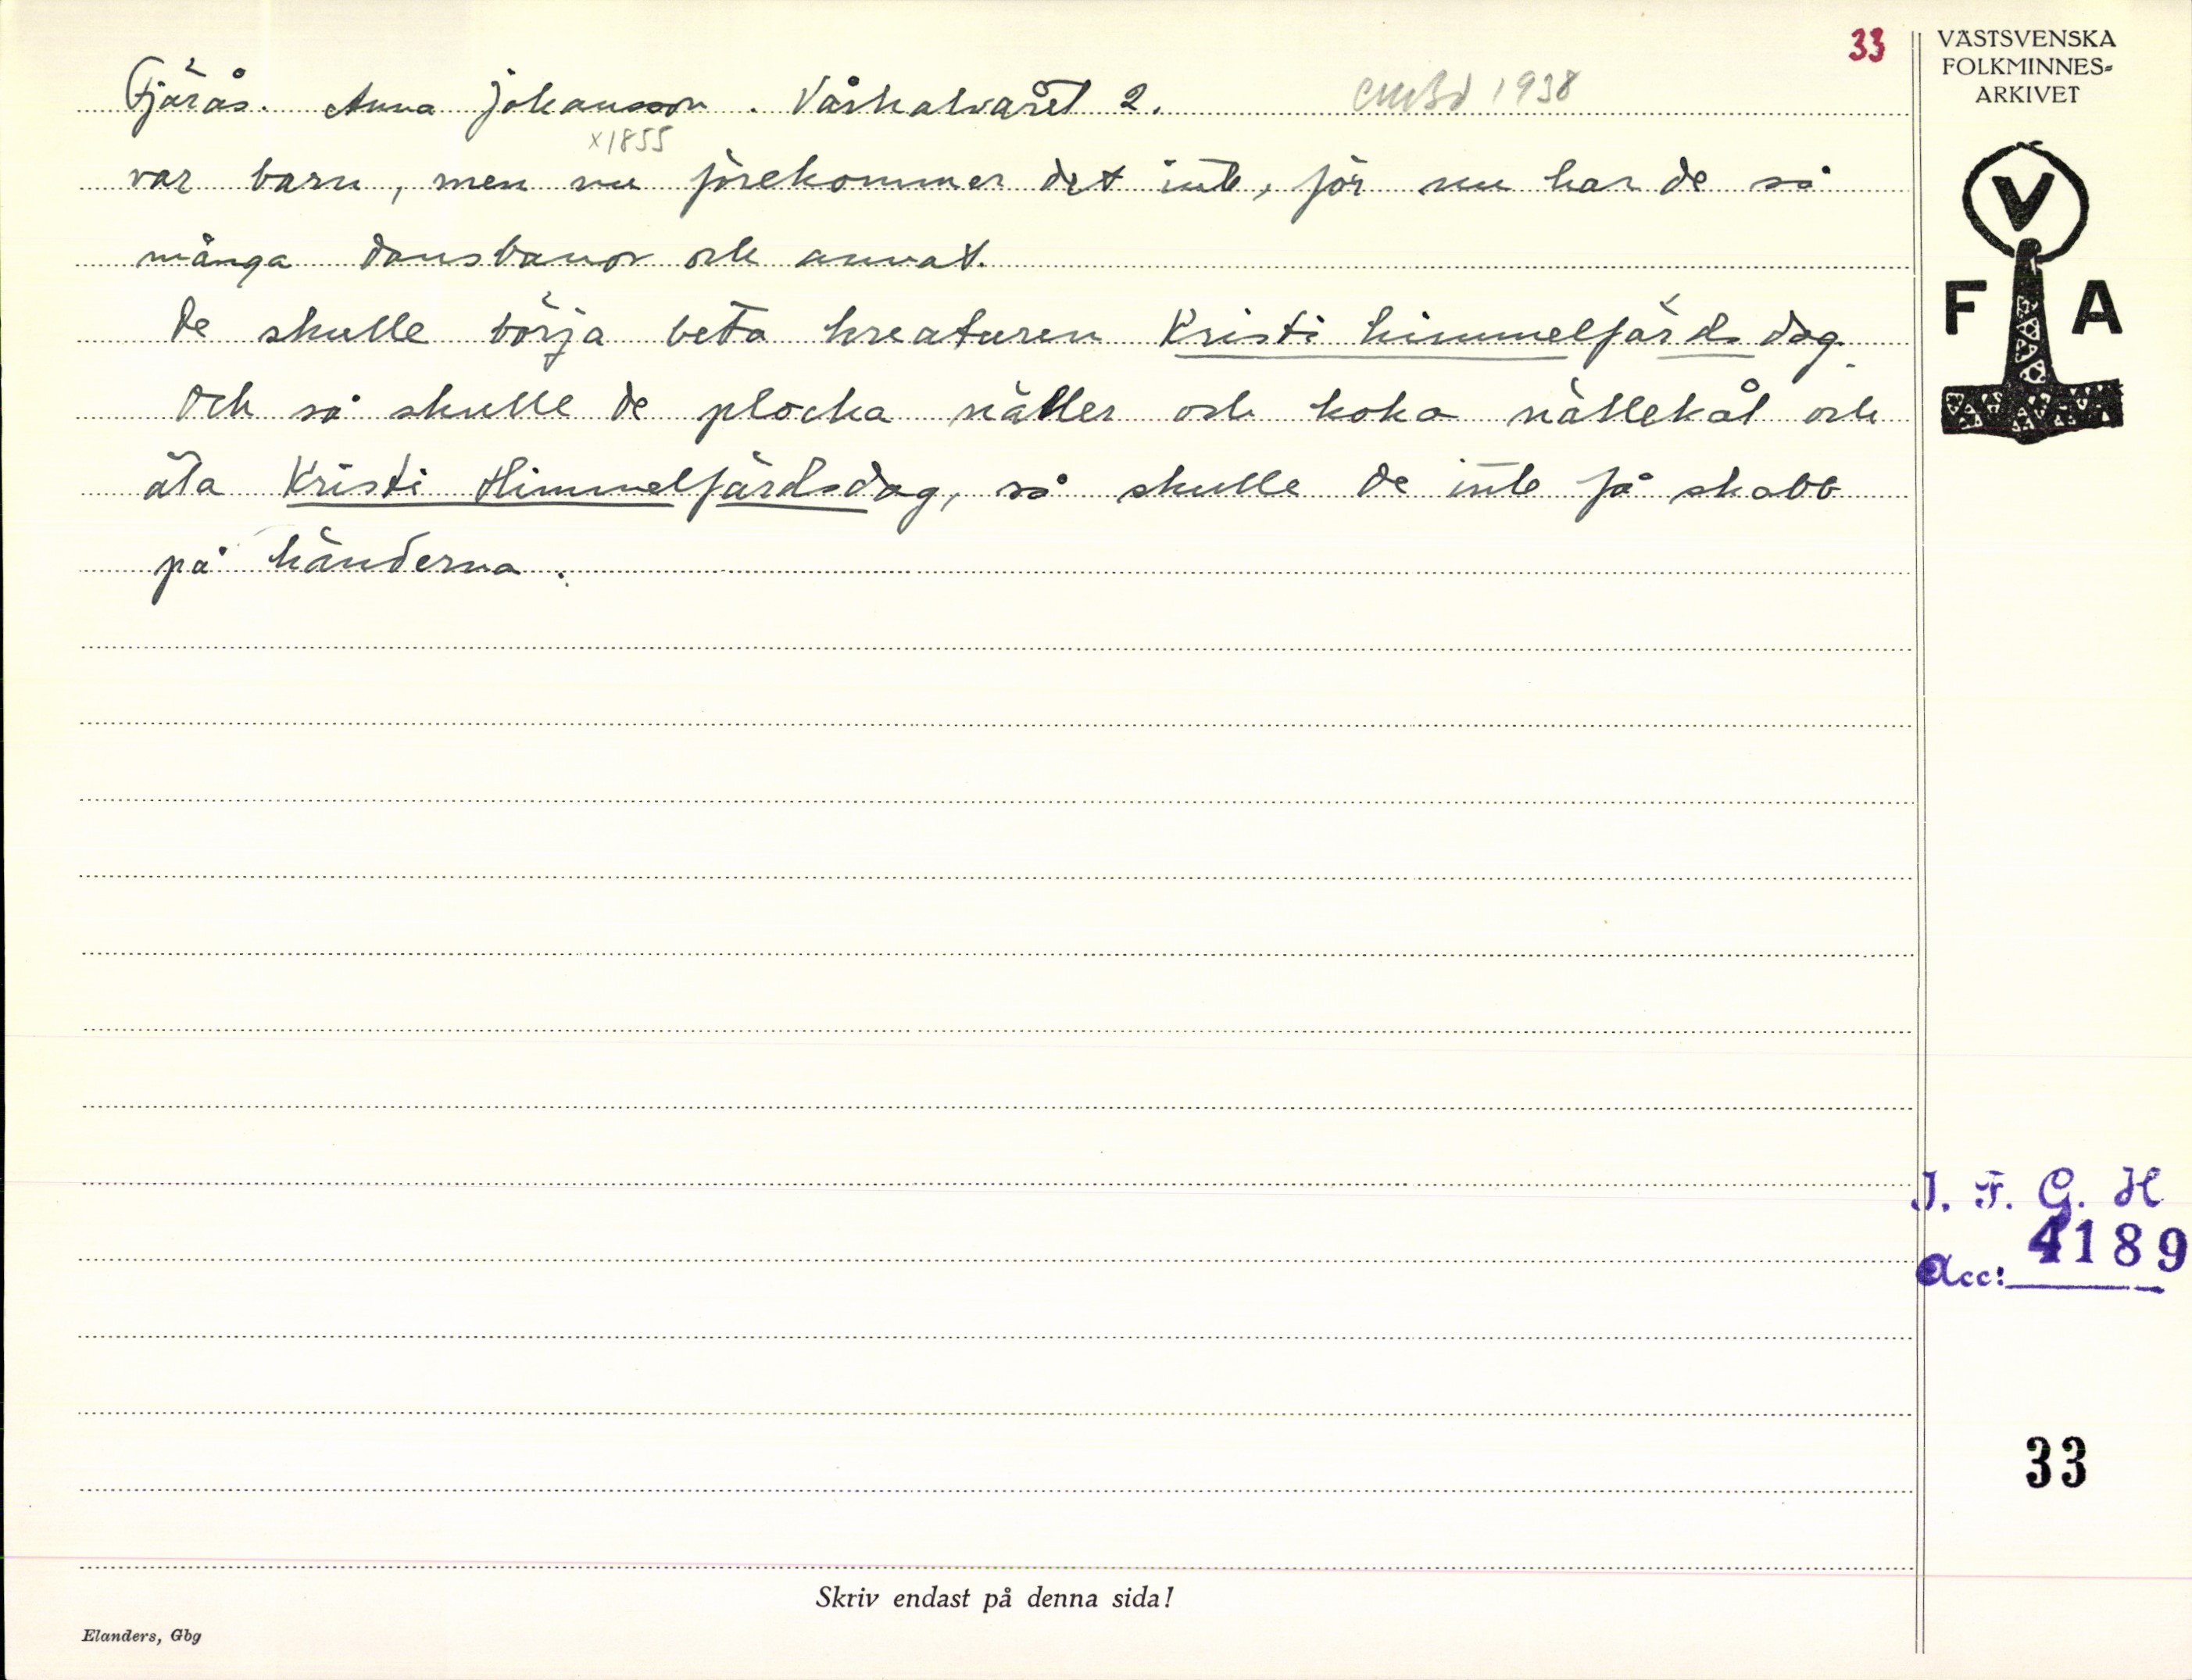 33
Fjärås. Anna Johansson. Vårhalvåret 2. CMBd 1938
x1855
var barn, men nu förekommer det inte, för nu har de så
många dansbanor och annat.
De skulle börja beta kreaturen Kristi himmelfärdsdag.
Och så skulle de plocka nätler och koka nätlekål och
äta Kristi Himmelfärdsdag, så skulle de inte få skabb
på händerna.
VÄSTSVENSKA
FOLKMINNES-
ARKIVET
V
F A
I. F. G. H
4189
Acc:
33
Skriv endast på denna sida!
Elanders, Gbg